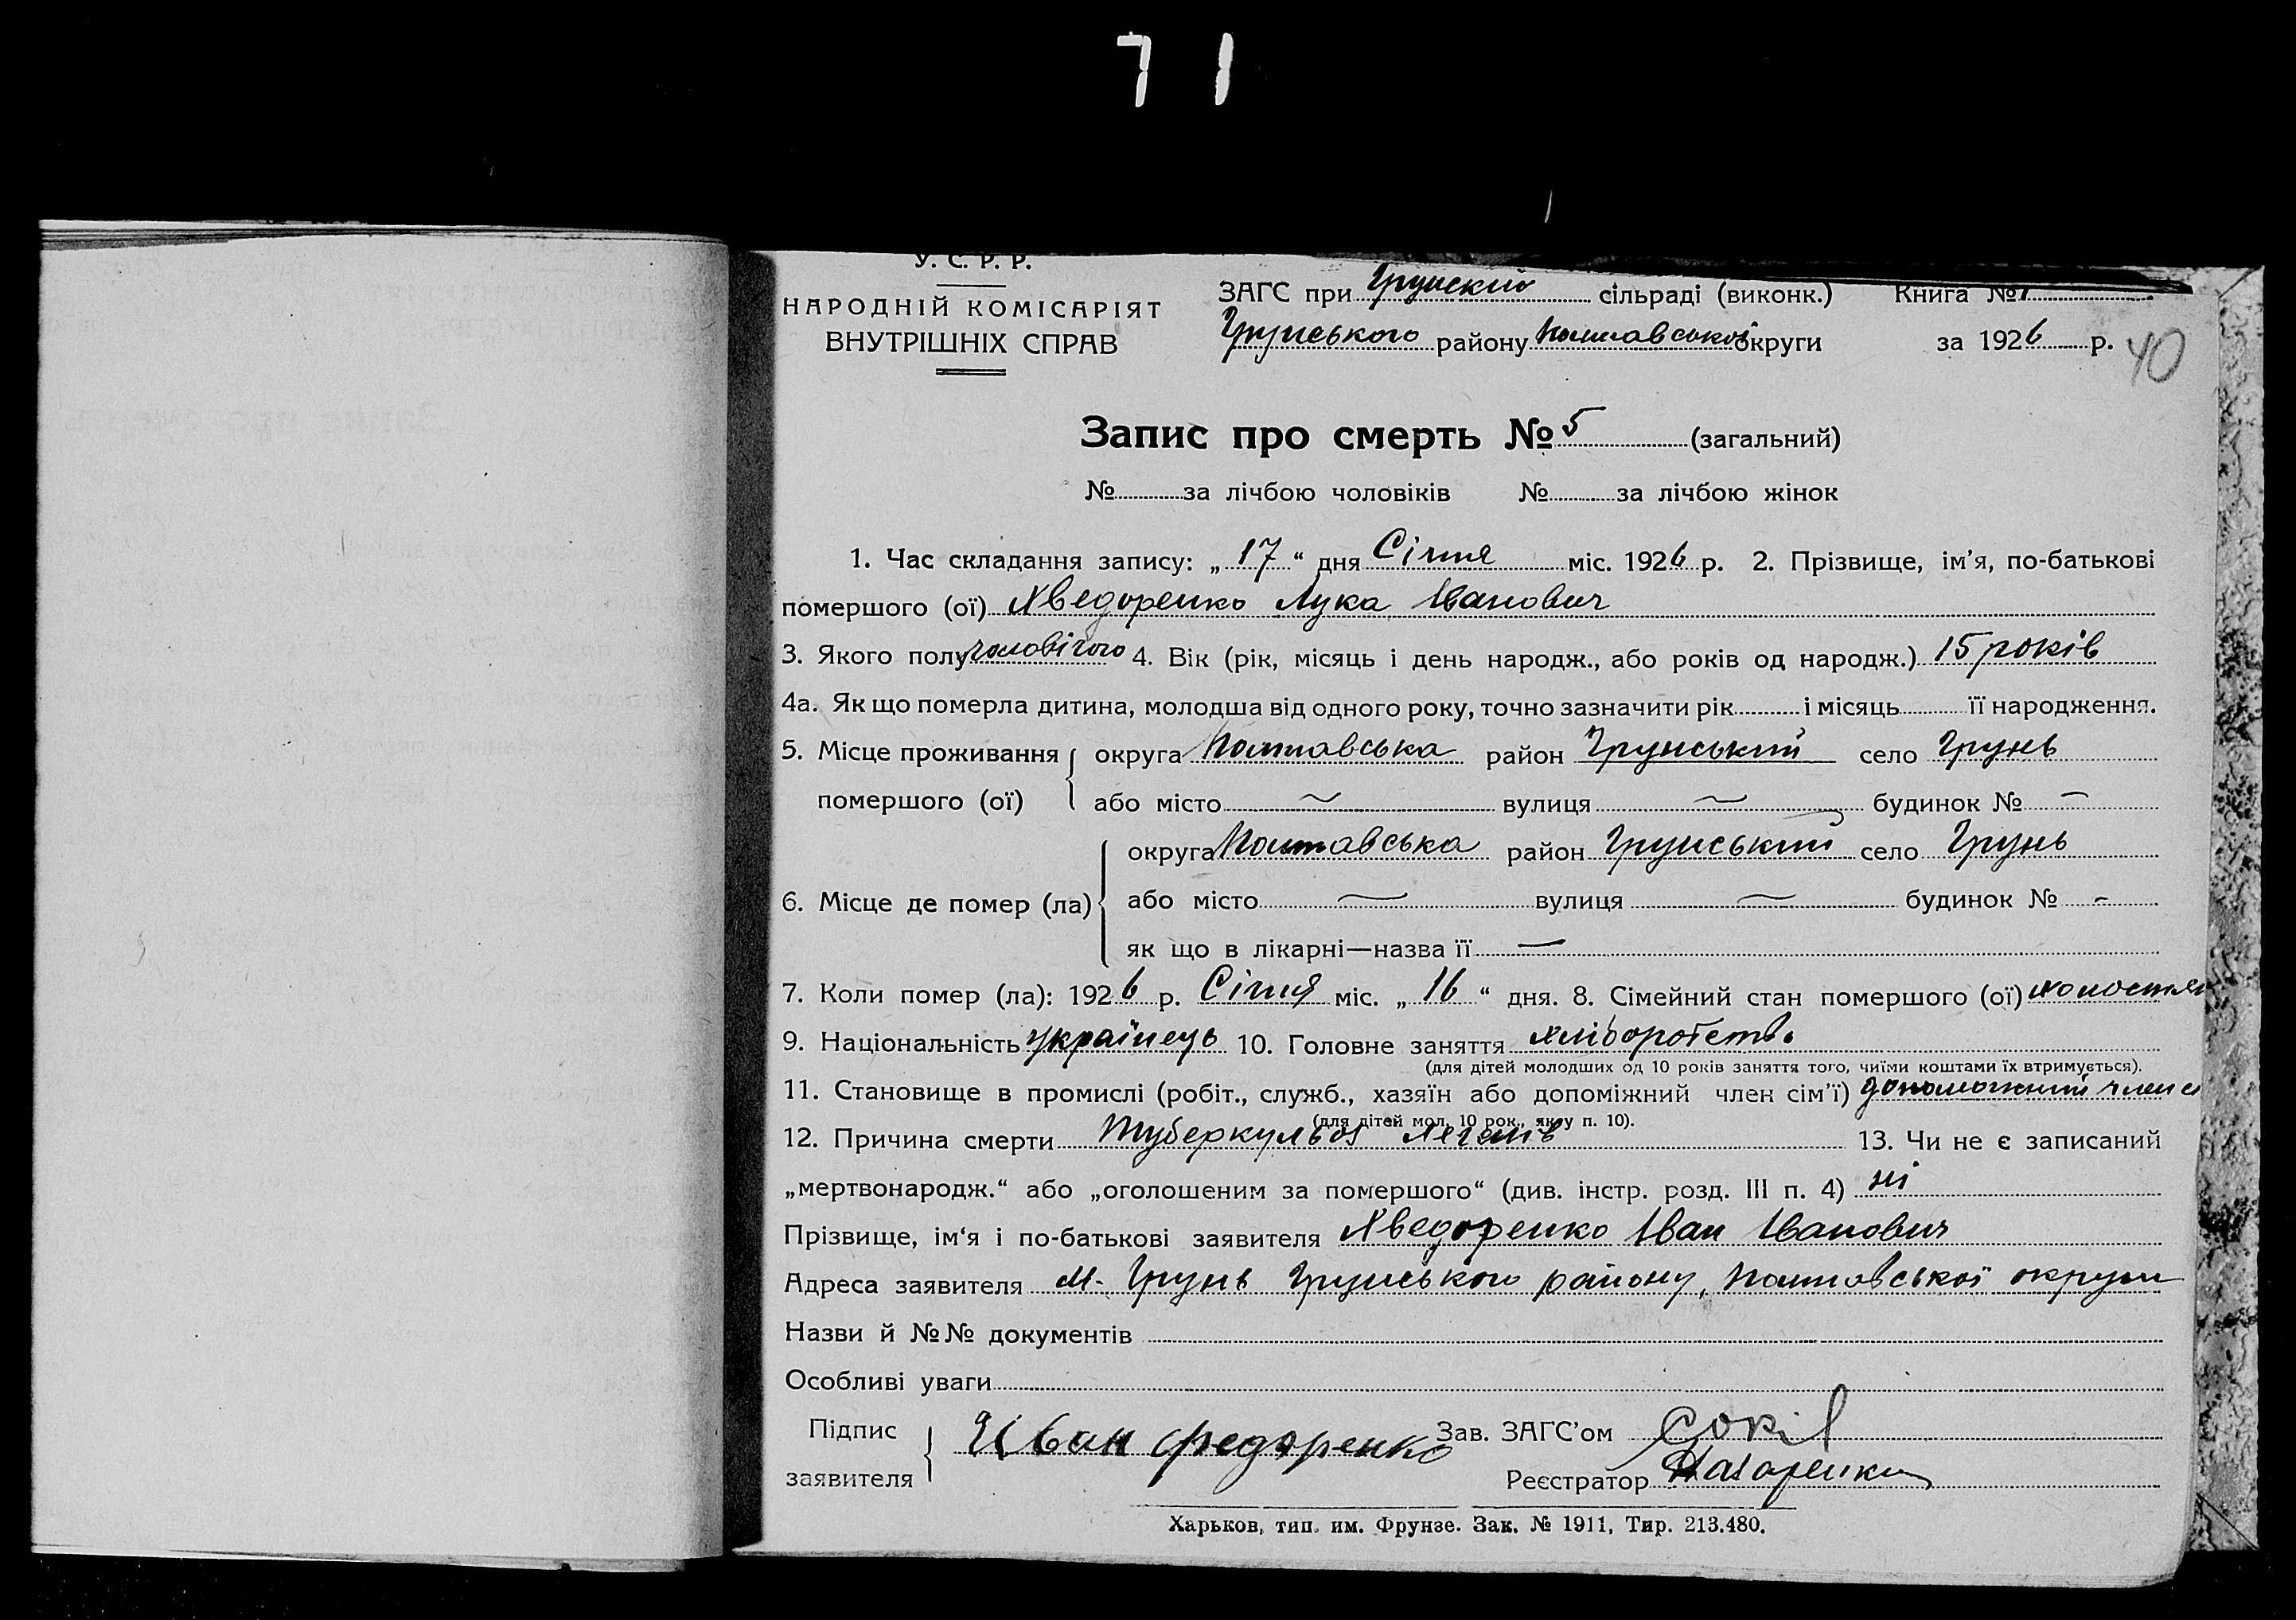 71
У. С. Р. Р.
НАРОДНІЙ КОМІСАРІЯТ
ВНУТРІШНІХ СПРАВ
ЗАГС при Грунській сільраді (виконк.) Книга №1
Грунського району Полтавської округи за 1926 р.
40
Запис про смерть № 5 (загальний)
№ за лічбою чоловіків № за лічбою жінок
1. Час складання запису: „17“ дня Січня міс. 1926 р. 2. Прізвище, ім’я, по-батькові
помершого (ої) Хведоренко Лука Іванович
3. Якого полу чоловічого 4. Вік (рік, місяць і день народж., або років од народж.) 15 років
4а. Як що померла дитина, молодша від одного року, точно зазначити рік і місяць її народження.
5. Місце проживання помершого (ої) { округа Полтавська район Грунський село Грунь
або місто ~ вулиця ~ будинок № –
6. Місце де помер (ла) { округа Полтавська район Грунський село Грунь
або місто — вулиця — будинок № -
як що в лікарні—назва її —
7. Коли помер (ла): 1926 р. Січня міс. „16“ дня. 8. Сімейний стан помершого (ої)
9. Національність українець 10. Головне заняття хліборобство
(для дітей молодших од 10 років заняття того, чиїми коштами їх втримується).
11. Становище в промислі (робіт., служб., хазяїн або допоміжний член сім’ї) допоможний член
(для дітей мол. 10 рок., як у п. 10).
12. Причина смерти Туберкульоз легенів 13. Чи не є записаний
„мертвонародж.“ або „оголошеним за помершого“ (див. інстр. розд. III п. 4) ні
Прізвище, ім‘я і по-батькові заявителя Хведоренко Іван Іванович
Адреса заявителя м. Грунь Грунського району, Полтавської округи
Назви й №№ документів
Особливі уваги
Підпис заявителя { Иван Федоренко Зав. ЗАГС’ом Сокіл
Реєстратор Назаренко
Харьков, тип. им. Фрунзе. Зак. № 1911, Тир. 213.480.